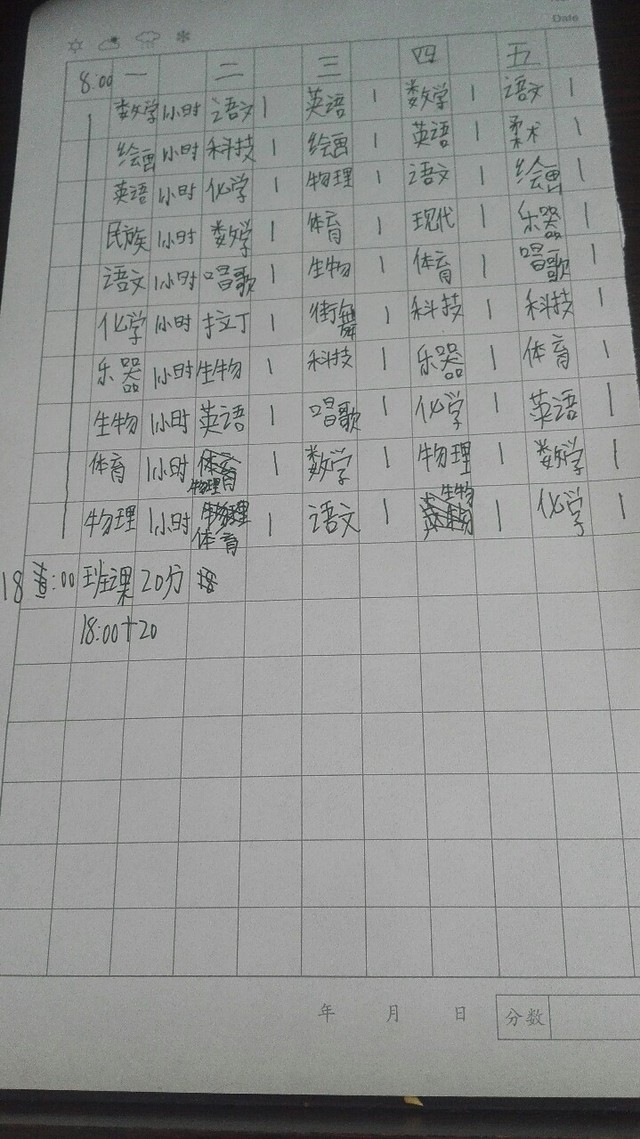 Date
8:00 一 二 三 四 五
数学 1小时 语文 1 英语 1 数学 1 语文 1
绘画 1小时 科技 1 绘画 1 英语 1 柔术 1
英语 1小时 化学 1 物理 1 语文 1 绘画 1
民族 1小时 数学 1 体育 1 现代 1 乐器 1
语文 1小时 唱歌 1 生物 1 体育 1 唱歌 1
化学 1小时 拉丁 1 街舞 1 科技 1 科技 1
乐器 1小时 生物 1 科技 1 乐器 1 体育 1
生物 1小时 英语 1 唱歌 1 化学 1 英语 1
体育 1小时 物理 1 数学 1 物理 1 数学 1
物理 1小时 体育 1 语文 1 生物 1 化学 1
18:00 班课 20分
18:00+20
年 月 日 分数